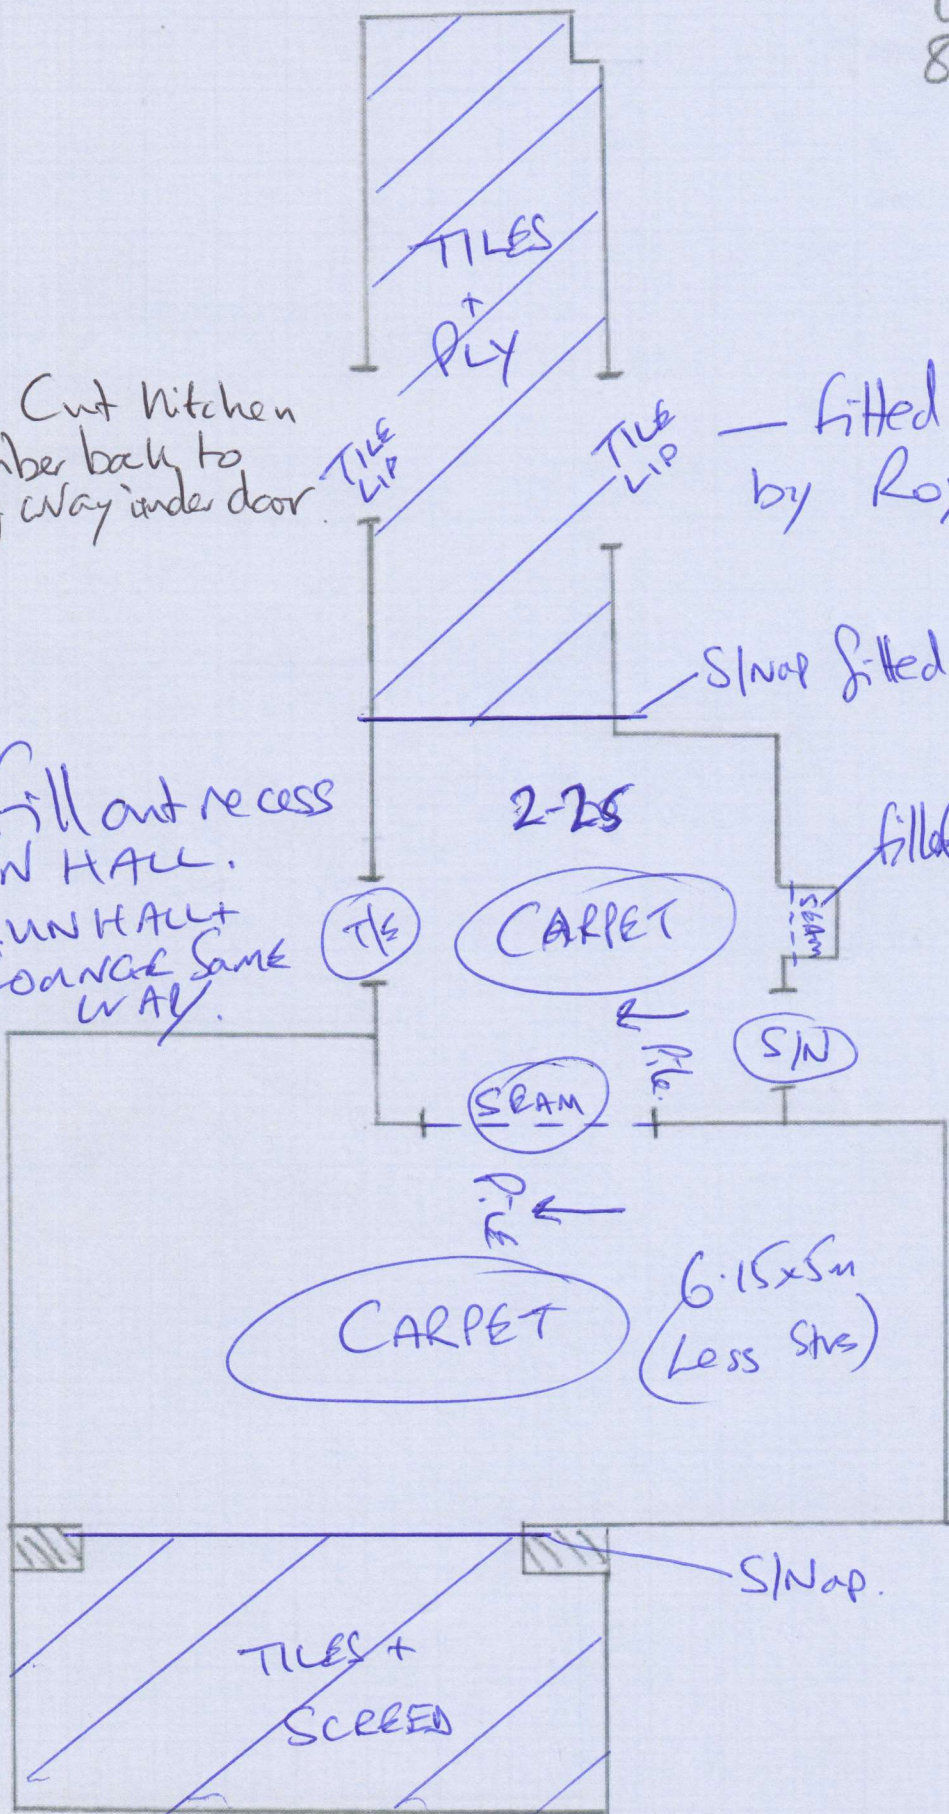 8
TILES
+
PLY
Cut Kitchen
ber back to
way under door.
TILE
LIP
TILE
LIP
— fitted
by Ro
S/Nap fitted
fill out recess
N HALL.
UN HALL +
OUNGE SAME
WAY.
2-25
T/E
CARPET
filled
SEAM
← Pile.
S/N
SEAM
Pile ←
CARPET
6.15x5m
(Less Strs)
S/Nap.
TILES +
SCREED